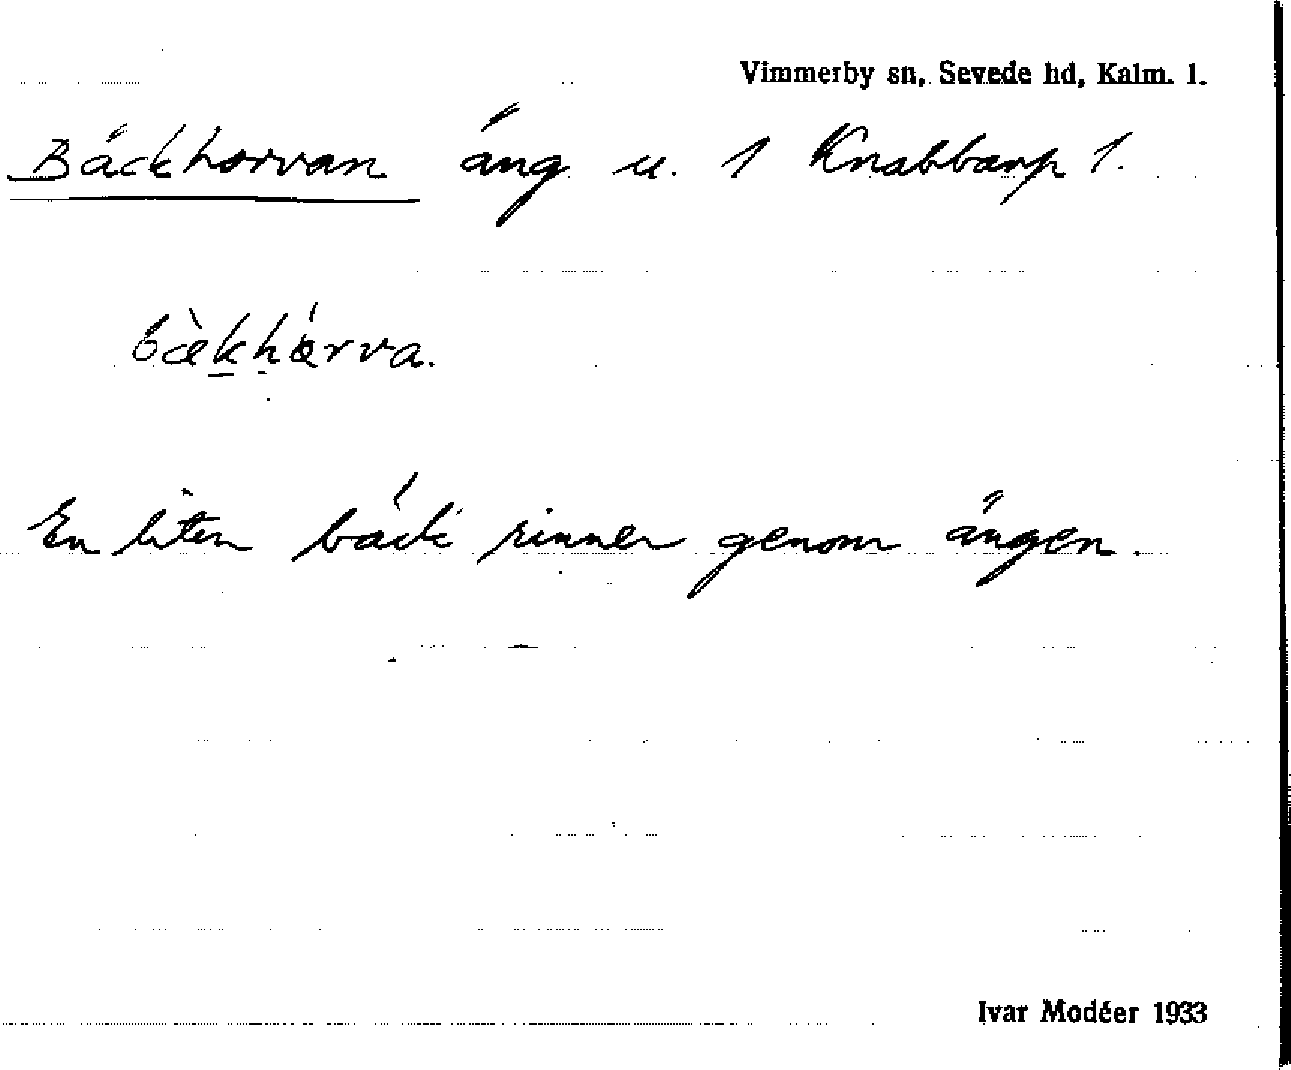 Vimmerby sn, Sevede hd, Kalm. l.
Bäckhorvan äng u. 1 Knabbarp 1.
bæ̀khórva.
En liten bäck rinner genom ängen.
Ivar Modéer 1933